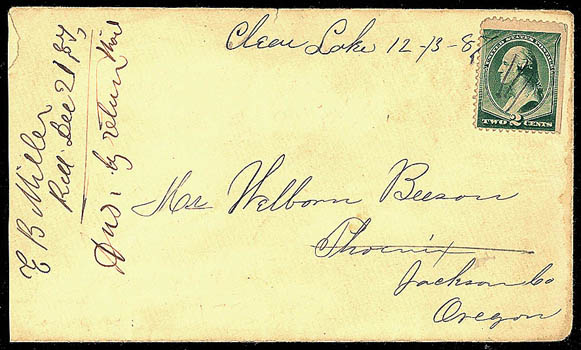 Clear Lake 12-13-87
UNITED STATES POSTAGE
TWO 2 CENTS
E B Miller
Recd Dec 21 87,
Ans. by return Mail
Mr Welborn Beeson
Phoenix
Jackson Co
Oregon